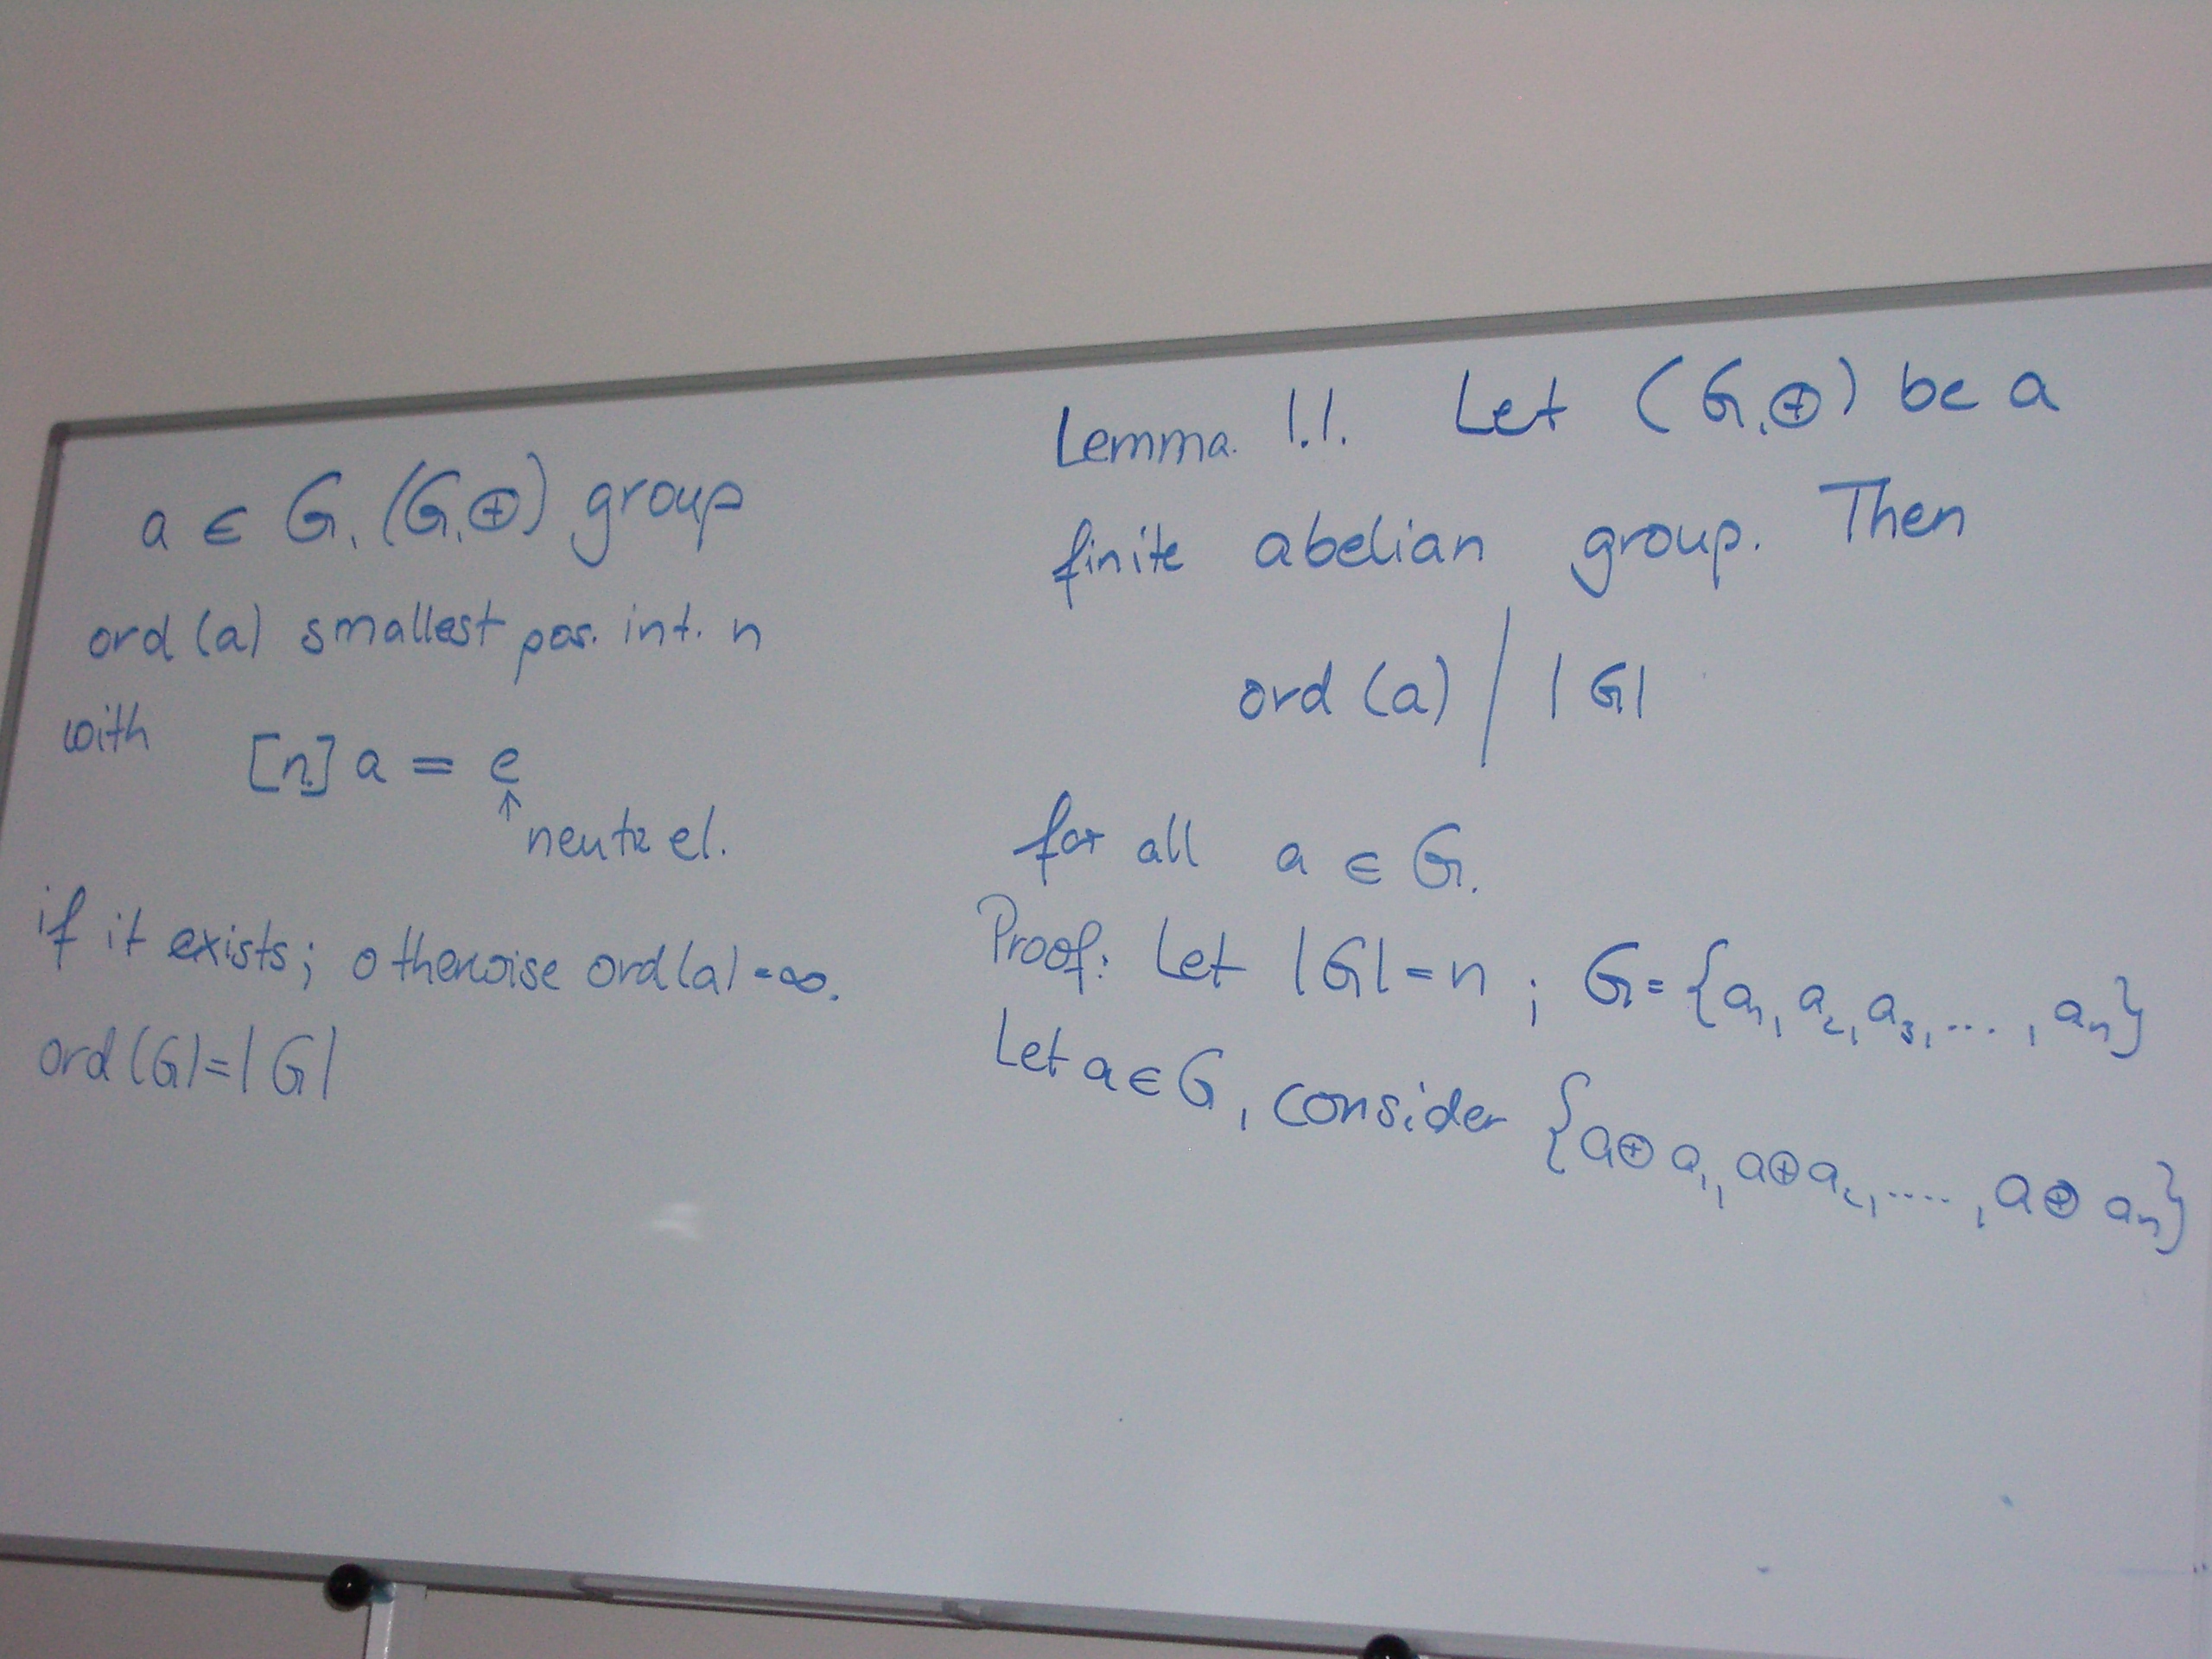 a ∈ G, (G,⊕) group
ord (a) smallest pos. int. n
with [n] a = e
↑
neutr el.
if it exists; otherwise ord(a) = ∞.
ord (G) = |G|
Lemma. 1.1. Let (G,⊕) be a
finite abelian group. Then
ord (a) / |G|
for all a ∈ G.
Proof: Let |G| = n ; G = {a₁, a₂, a₃, ...., aₙ}
Let a ∈ G, consider {a⊕a₁, a⊕a₂, ...., a⊕aₙ}